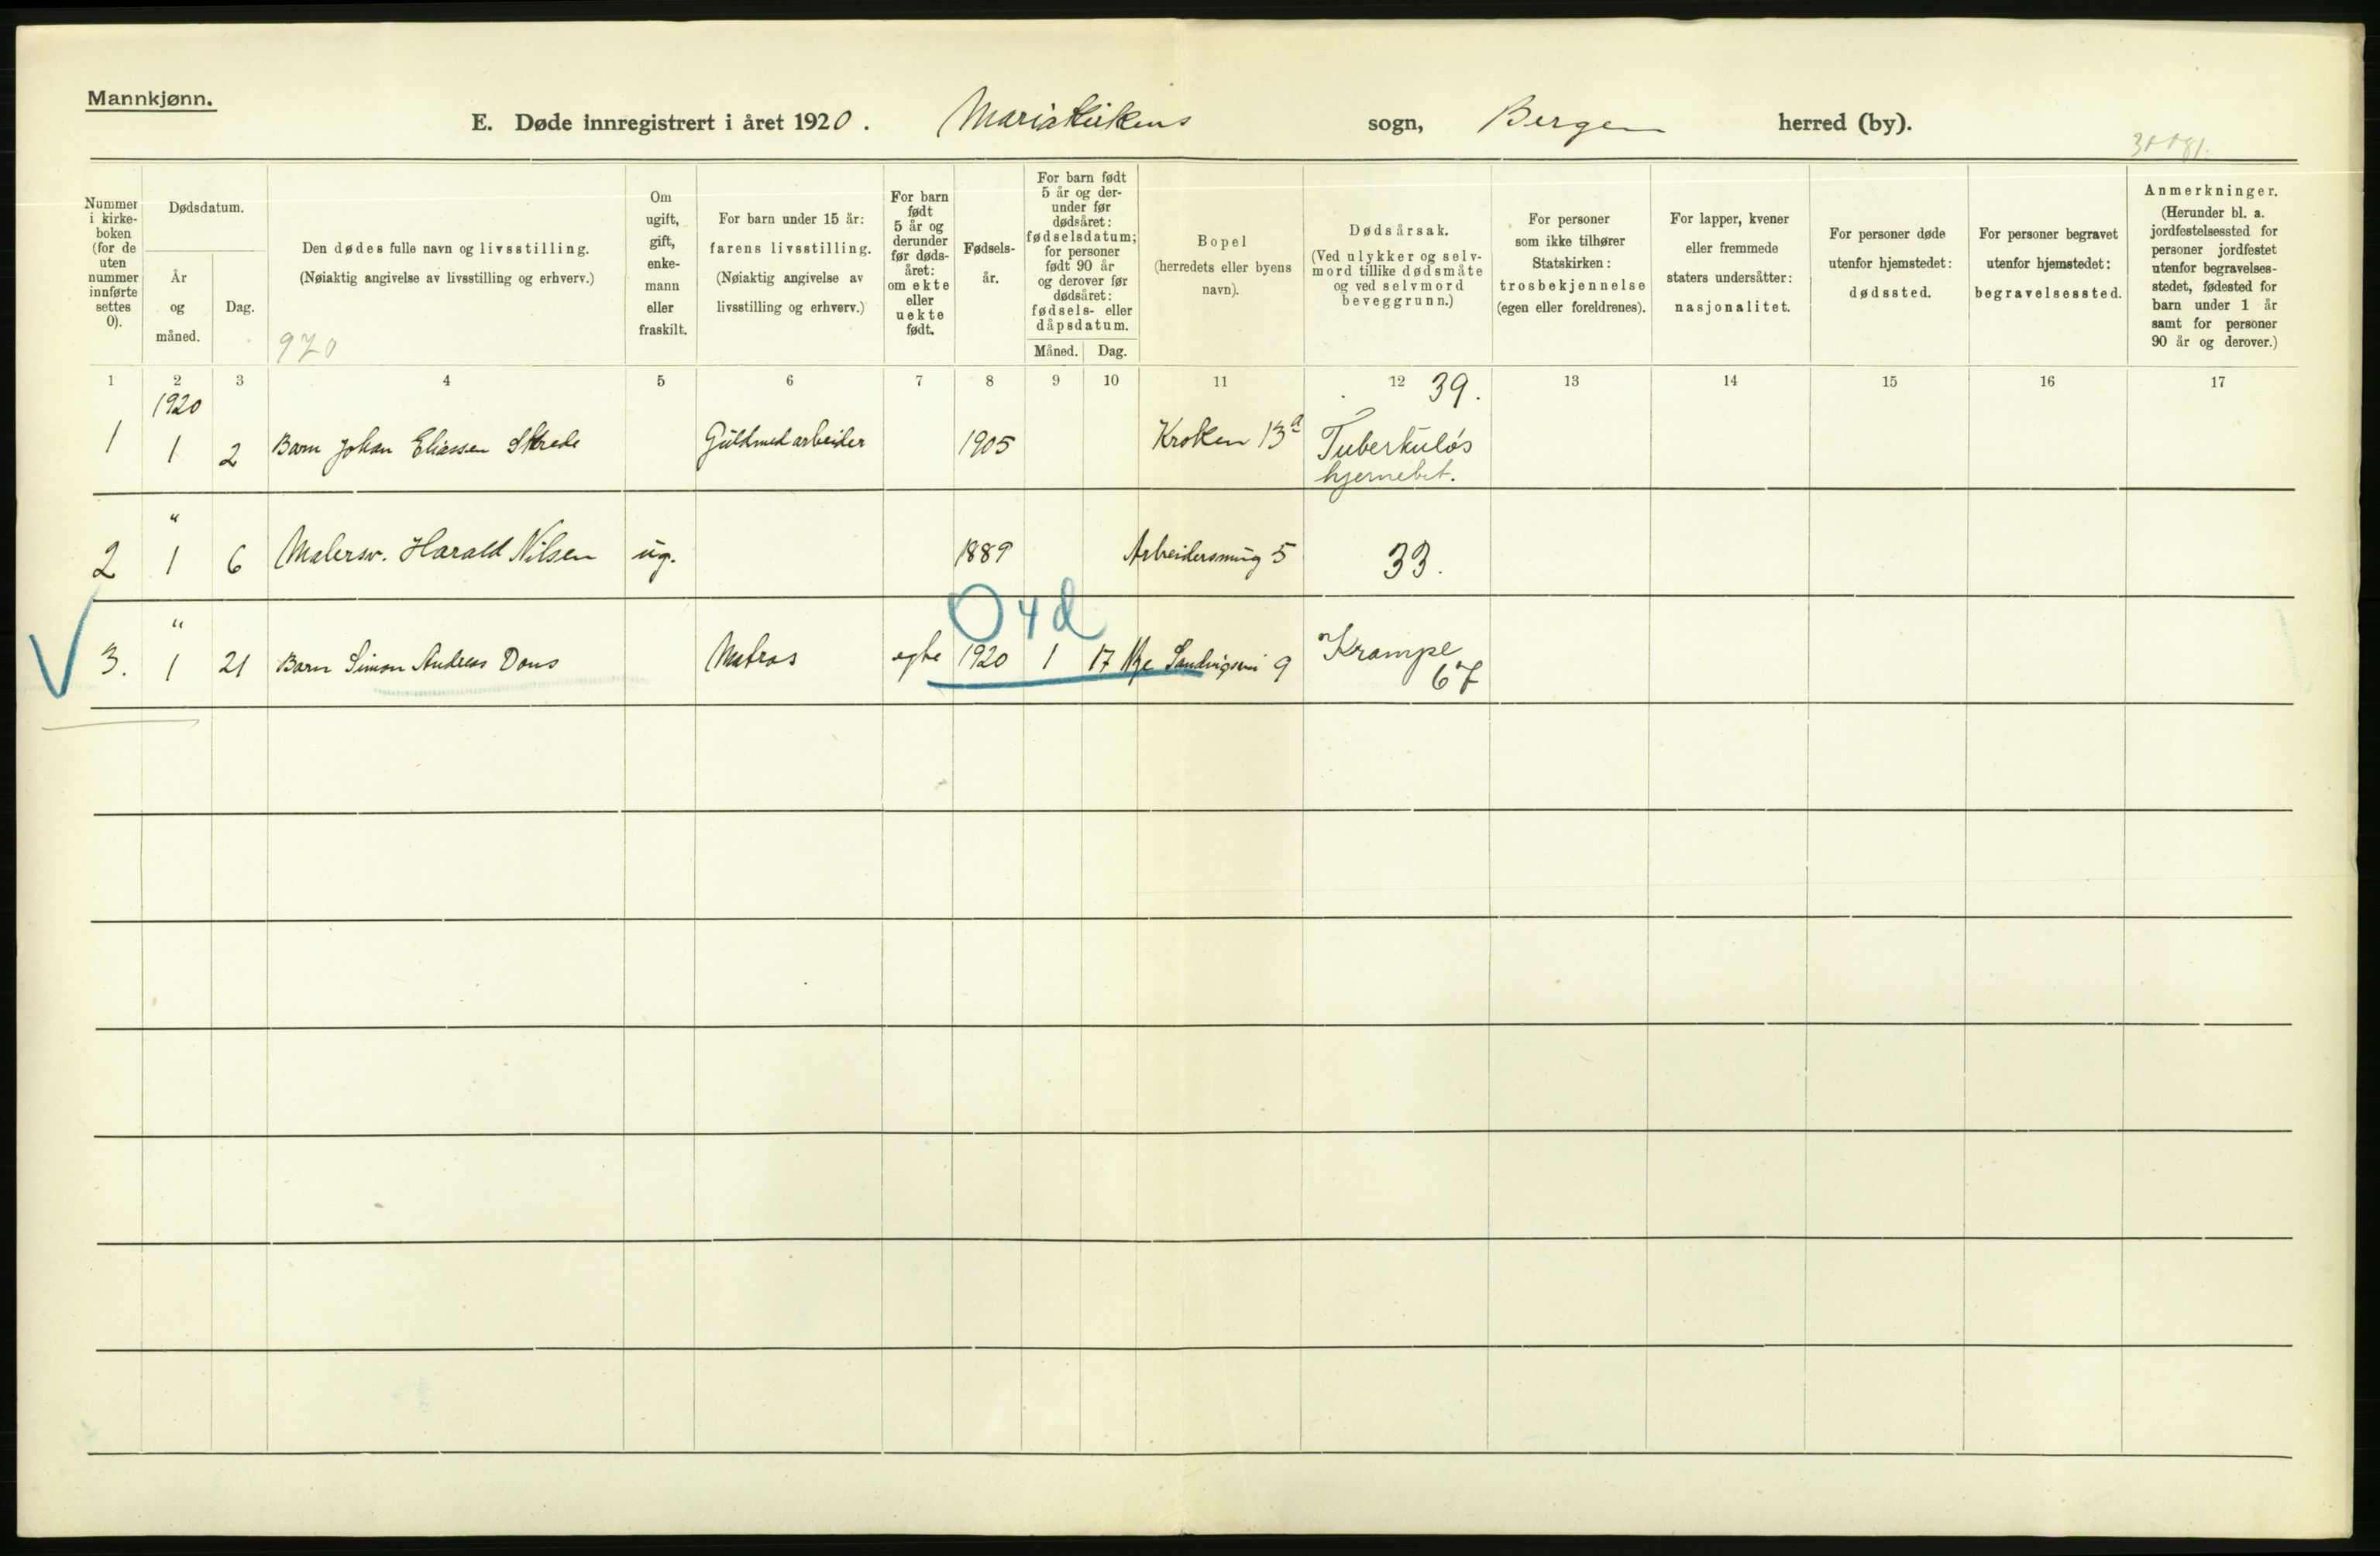 Mannkjønn.
E. Døde innregistrert i året 1920. Mariakirkens sogn, Bergen herred (by).
Nummer
i kirke-
boken
(for de
uten
nummer
innførte
settes
0).
Dødsdatum.
År
og
måned.
Dag.
Den dødes fulle navn og livsstilling.
(Nøiaktig angivelse av livsstilling og erhverv.)
920
Om
ugift,
gift,
enke-
mann
eller
fraskilt.
For barn under 15 år:
farens livsstilling.
(Nøiaktig angivelse av
livsstilling og erhverv.)
For barn
født
5 år og
derunder
før døds-
året:
om ekte
eller
uekte
født.
Fødsels-
år.
For barn født
5 år og der-
under før
dødsåret:
fødselsdatum;
for personer
født 90 år
og derover før
dødsåret:
fødsels- eller
dåpsdatum.
Måned. Dag.
Bopel
(herredets eller byens
navn).
Dødsårsak.
(Ved ulykker og selv-
mord tillike dødsmåte
og ved selvmord
beveggrunn.)
For personer
som ikke tilhører
Statskirken:
trosbekjennelse
(egen eller foreldrenes).
For lapper, kvener
eller fremmede
staters undersåtter:
nasjonalitet.
For personer døde
utenfor hjemstedet:
dødssted.
For personer begravet
utenfor hjemstedet:
begravelsessted.
Anmerkninger.
(Herunder bl. a.
jordfestelsessted for
personer jordfestet
utenfor begravelses-
stedet, fødested for
barn under 1 år
samt for personer
90 år og derover.)
1 2 3 4 5 6 7 8 9 10 11 12 13 14 15 16 17
1920 39.
1 1 2 Barn Johan Eliassen Skrede Guldsmedarbeider 1905 Kroken 13a Tuberkuløs
hjernebet.
"
2 1 6 Malersv. Harald Nilsen ug. 1889 Arbeidersmug 5 33.
" 0 4 d
3. 1 21 Barn Simon Andreas Dons Matros egte 1920 1 17 Nye Sandvigsvei 9 Krampe
67